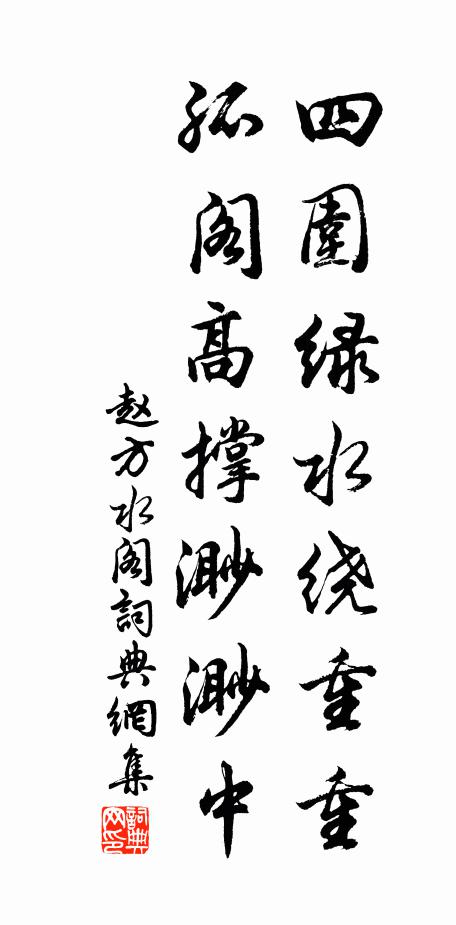 四圍緑水绕重重
孤阁高撑渺渺中
赵方水阁詞典網集
詞典网印